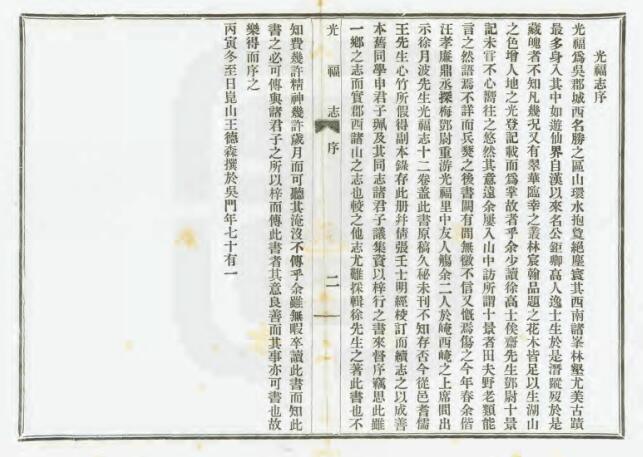 光福志序
光福爲吳郡城西名勝之區山環水抱敻絕塵寰其西南諸峯林壑尤美古蹟
最多身入其中如遊仙界自漢以來名公鉅卿高人逸士生於是潛蹤歿於是
藏魄者不知凡幾況又有翠華臨幸之叢林宸翰品題之花木皆足以生湖山
之色增人地之光登記載而爲掌故者乎余少讀徐高士俟齋先生鄧尉十景
記未嘗不心嚮往之悠然其意遠余屢入山中訪所謂十景者田夫野老類能
言之然語焉不詳而兵燹之後書闕有間無徵不信又慨焉傷之今年春余偕
汪孝廉鼎丞探梅鄧尉重游光福里中友人觴余二人於崦西崦之上席間出
示徐月波先生光福志十二卷蓋此書原稿久秘未刊不知存否今從邑耆儒
王先生心竹所假得副本錄存此册幷倩張王士明經校訂而續志之以成善
本舊同學申君子珮及其同志諸君子議集資以梓行之書來督序竊思此雖
一鄉之志而實郡西諸山之志也較之他志尤難採輯徐先生之著此書也不
光福志 序 二
知費幾許精神幾許歲月而可聽其淹沒不傳乎余雖無暇卒讀此書而知此
書之必可傳與諸君子之所以梓而傳此書者其意良善而其事亦可書也故
樂得而序之
丙寅冬至日崑山王德森撰於吳門年七十有一